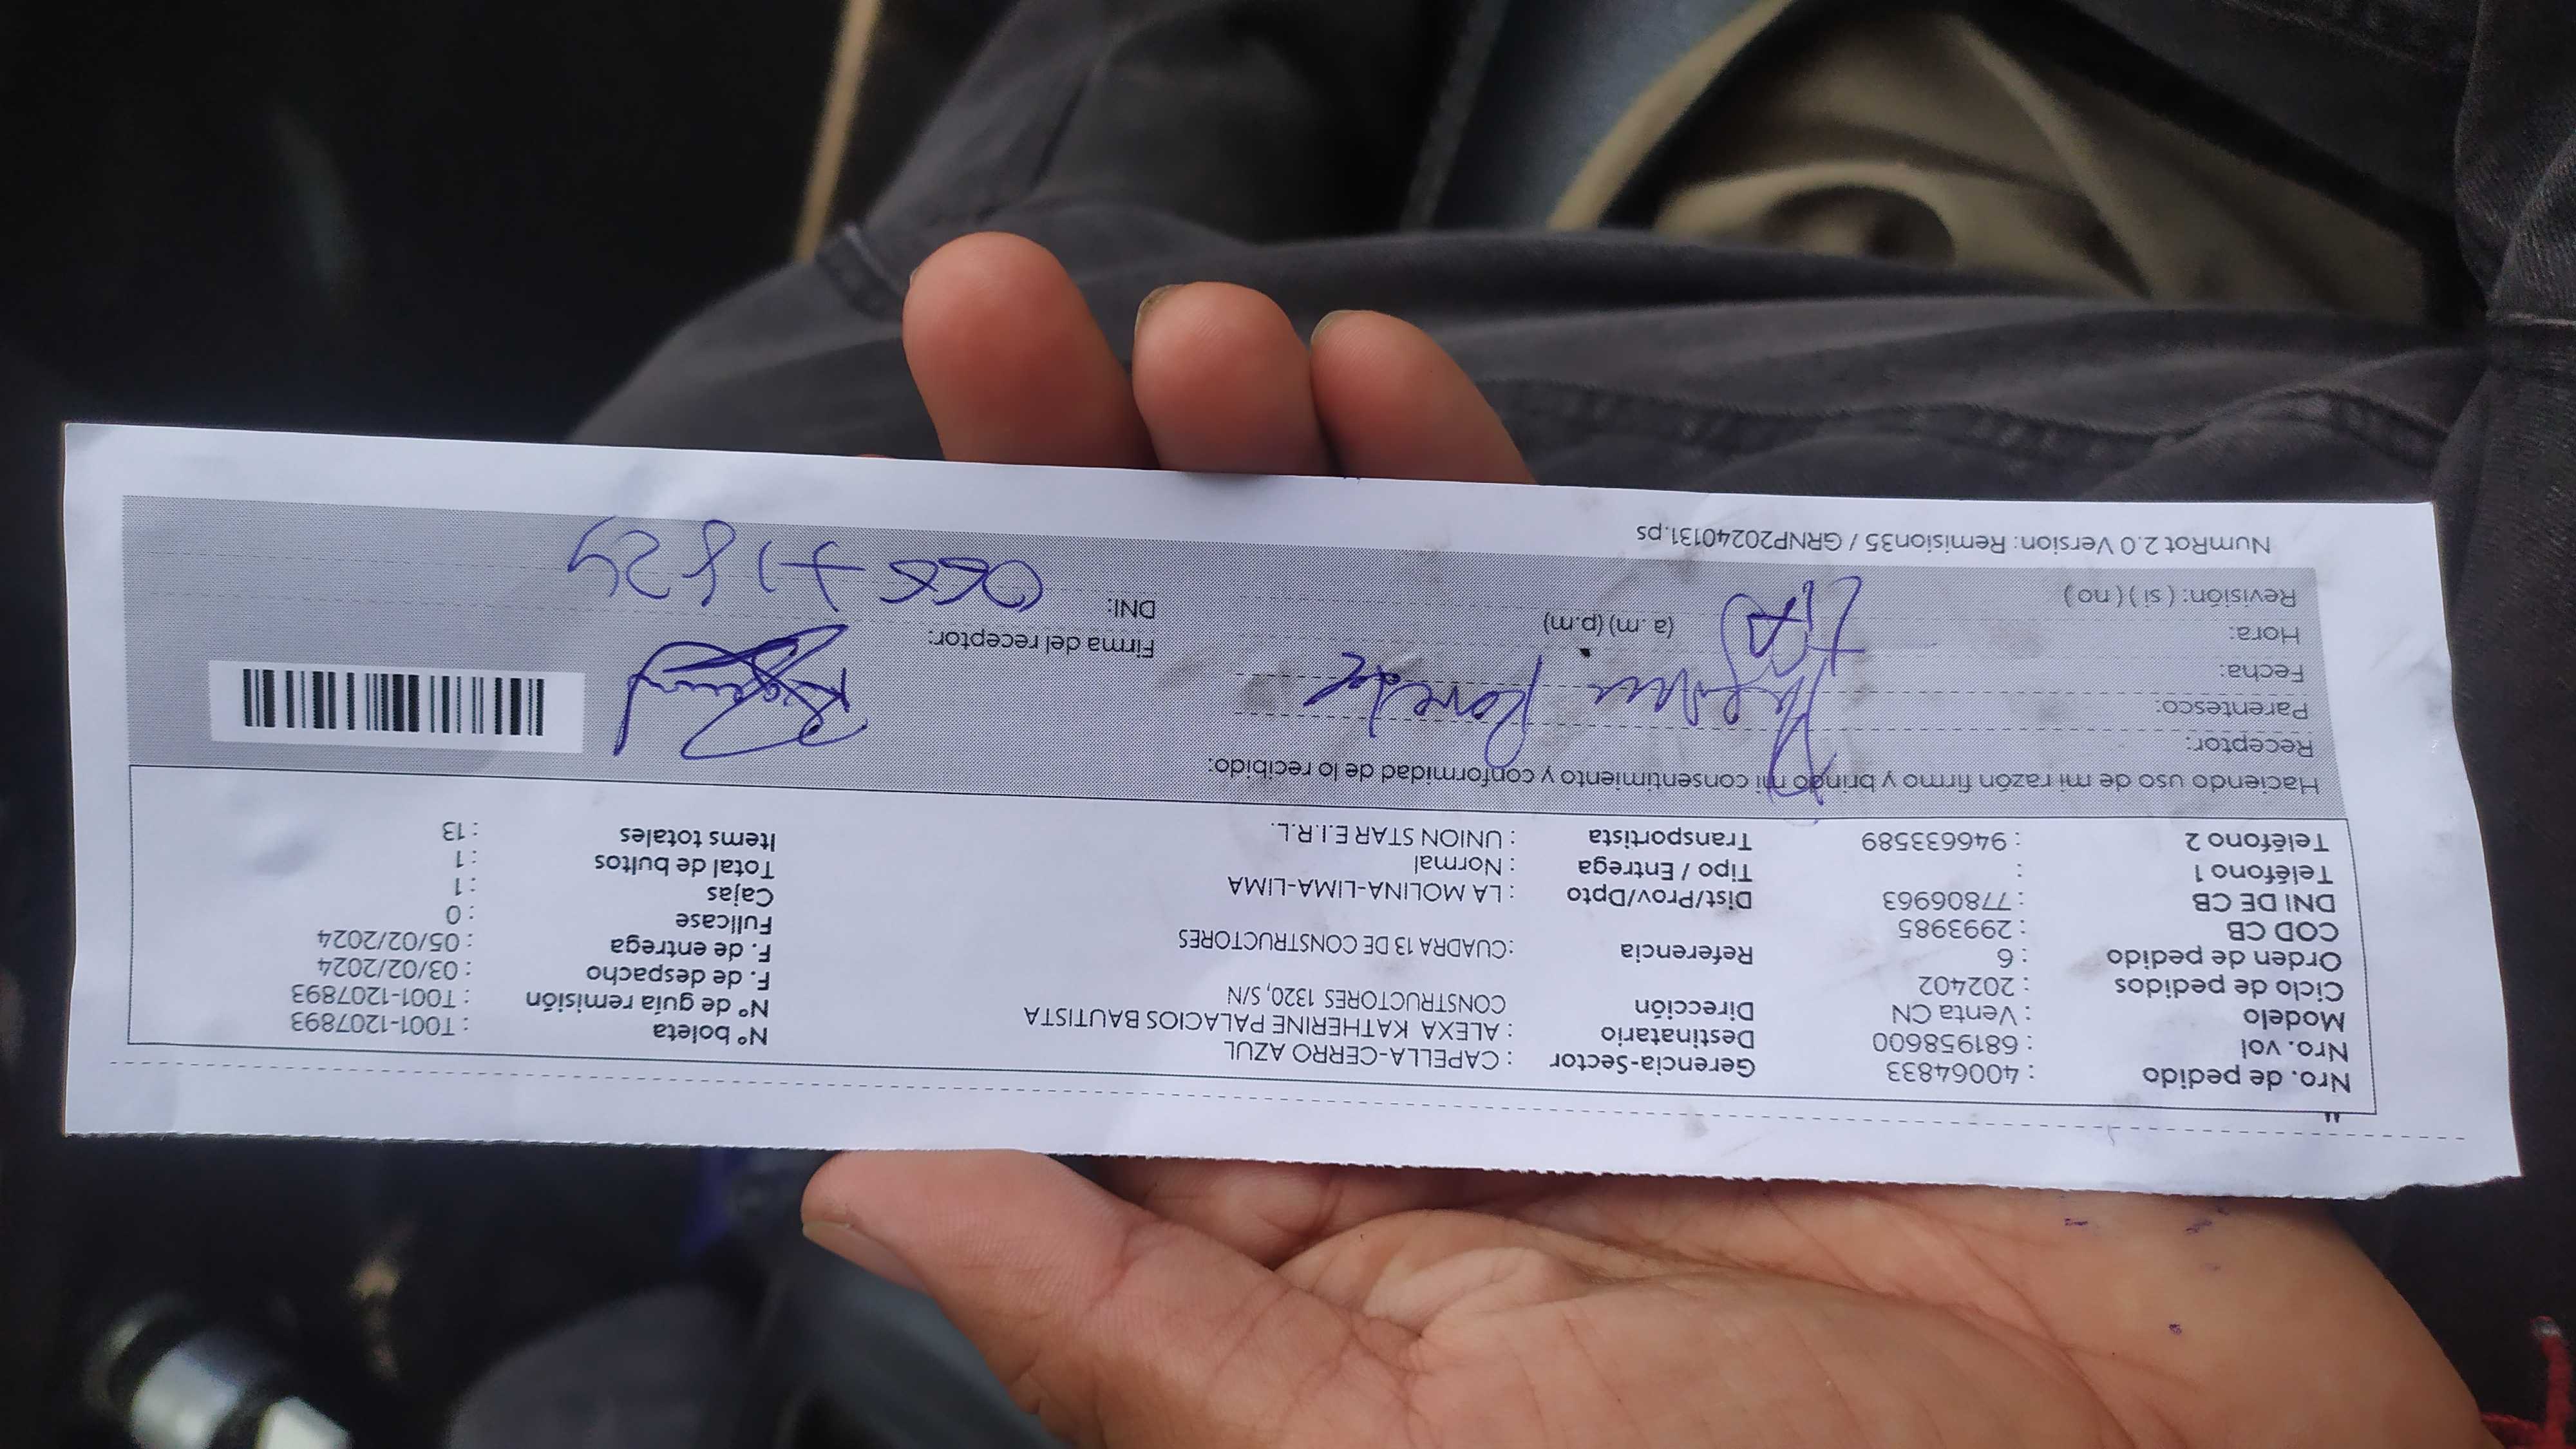 "
Nro. de pedido : 40064833 Gerencia-Sector : CAPELLA-CERRO AZUL Nº boleta : T001-1207893
Nro. vol : 681958600 Destinatario : ALEXA KATHERINE PALACIOS BAUTISTA Nº de guía remisión : T001-1207893
Modelo : Venta CN Dirección CONSTRUCTORES 1320, S/N F. de despacho : 03/02/2024
Ciclo de pedidos : 202402 F. de entrega : 05/02/2024
Orden de pedido : 6 Referencia :CUADRA 13 DE CONSTRUCTORES Fullcase : 0
COD CB : 2993985 Cajas : 1
DNI DE CB : 77806963 Dist/Prov/Dpto : LA MOLINA-LIMA-LIMA Total de bultos : 1
Teléfono 1 : Tipo / Entrega : Normal Items totales : 13
Teléfono 2 : 946633589 Transportista : UNION STAR E.I.R.L.
Haciendo uso de mi razón firmo y brindo mi consentimiento y conformidad de lo recibido:
Receptor:
Parentesco:
Fecha: Firma del receptor:
Hora: (a.m) (p.m) DNI:
Revisión: ( si ) ( no )
NumRot 2.0 Version: Remision35 / GRNP20240131.ps